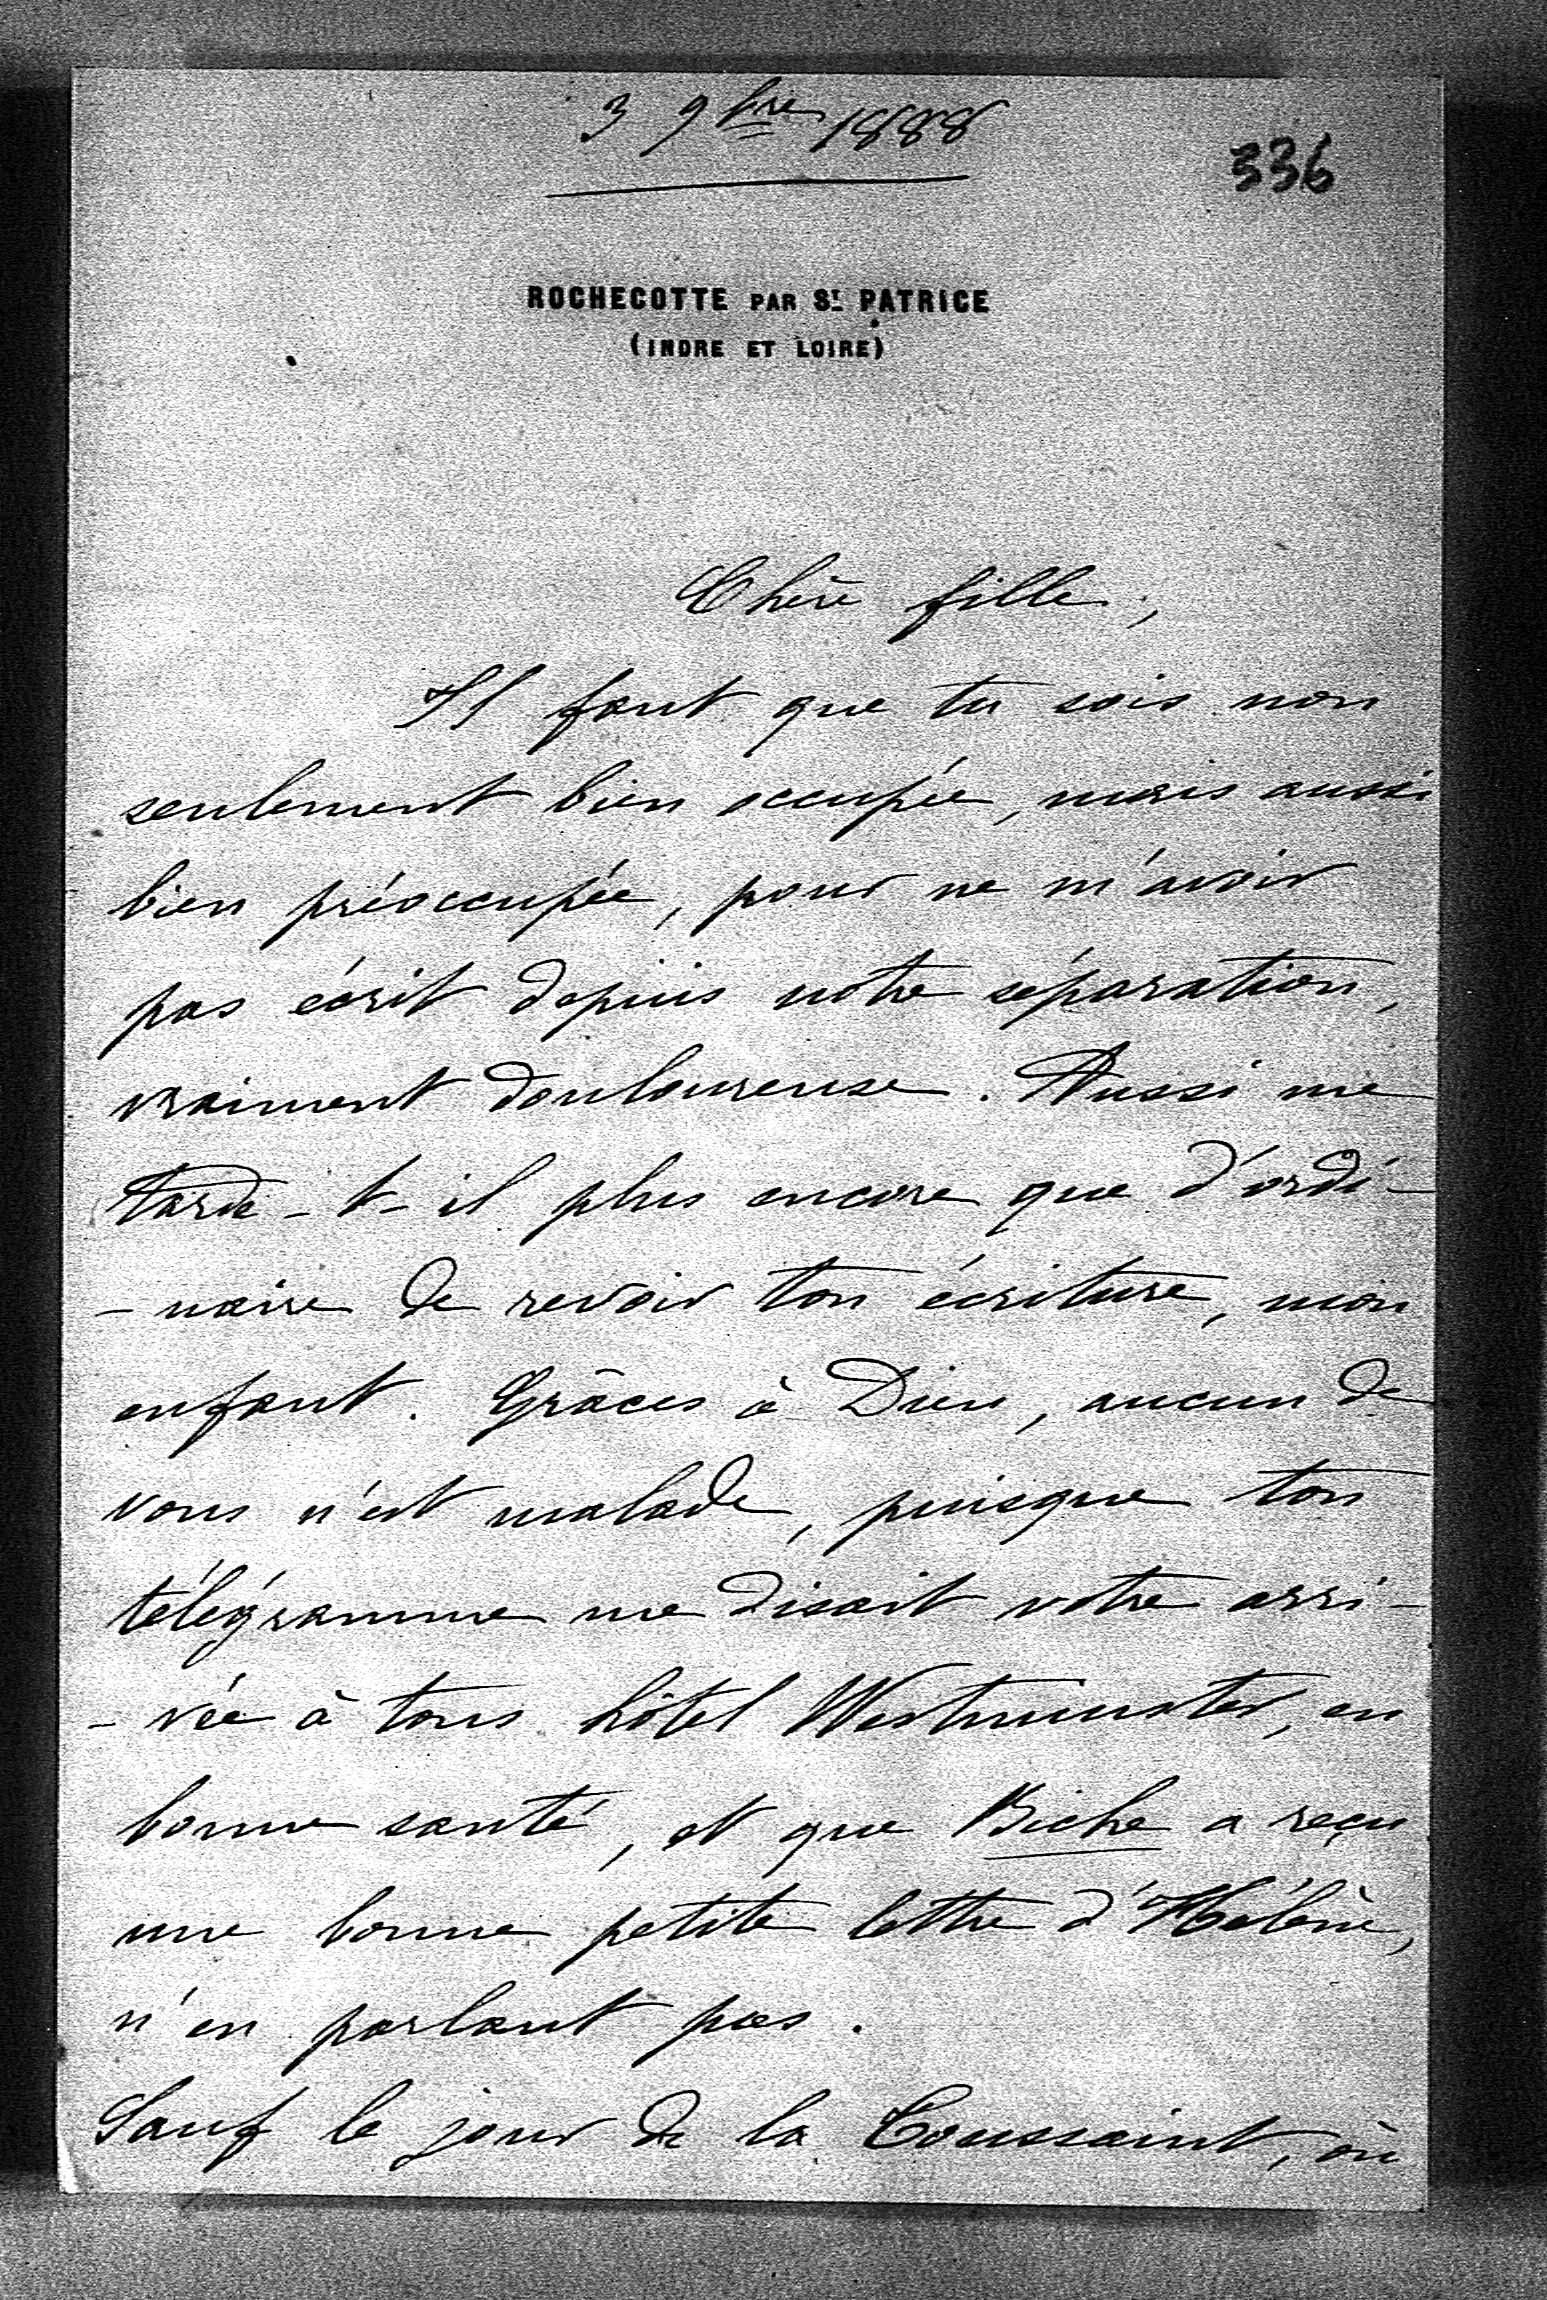 3 9bre 1888
336
ROCHECOTTE PAR ST. PATRICE
(INDRE ET LOIRE)
Chère fille,
Il faut que tu sois non
seulement bien occupée, mais aussi
bien préoccupée, pour ne m'avoir
pas écrit depuis notre séparation,
vraiment douloureuse. Aussi me
tarde-t-il plus encore que d'ordi-
-naire de revoir ton écriture, mon
enfant. Grâces à Dieu, aucun de
vous n'est malade, puisque ton
télégramme me disait votre arri-
-vée à tous hôtel Westminster, en
bonne santé, et que Biche a reçu
une bonne petite lettre d'Hélène,
n'en parlant pas.
Sauf le jour de la Toussaint, où